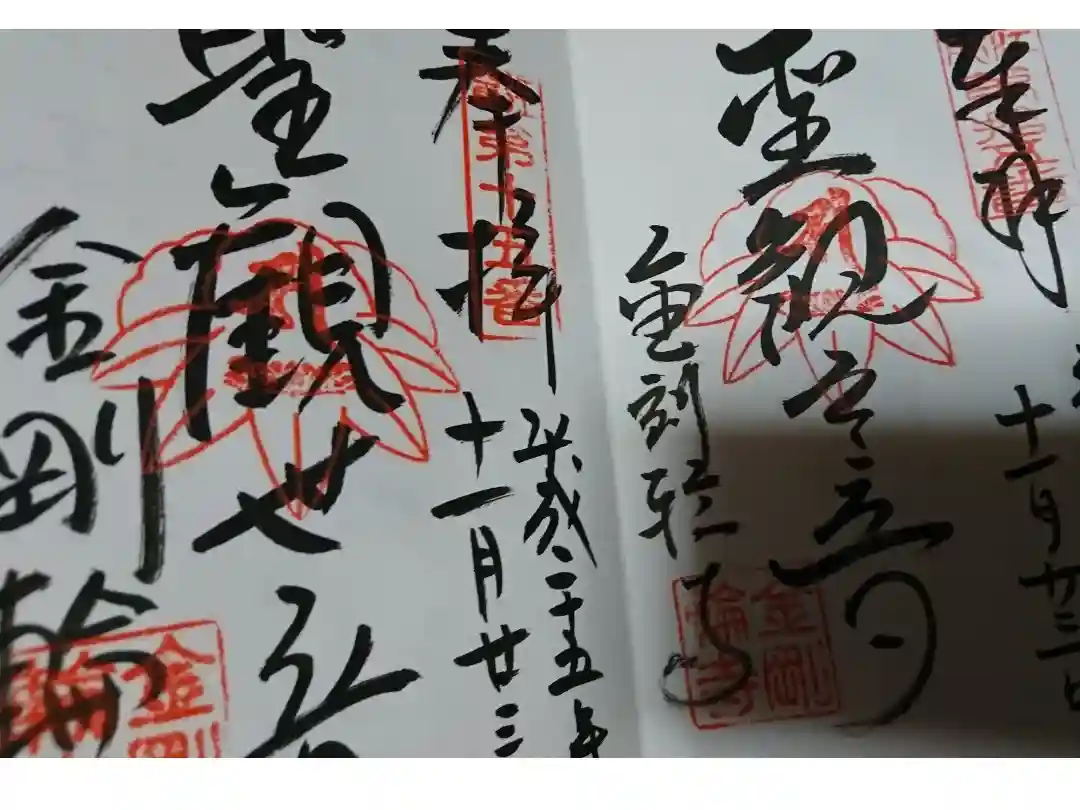 奉拝
十一月廿三日
聖観世音
金剛輪寺
金剛輪寺
奉拝
第十五番
平成二十五年
十一月廿三
聖観世
金剛輪
金剛輪